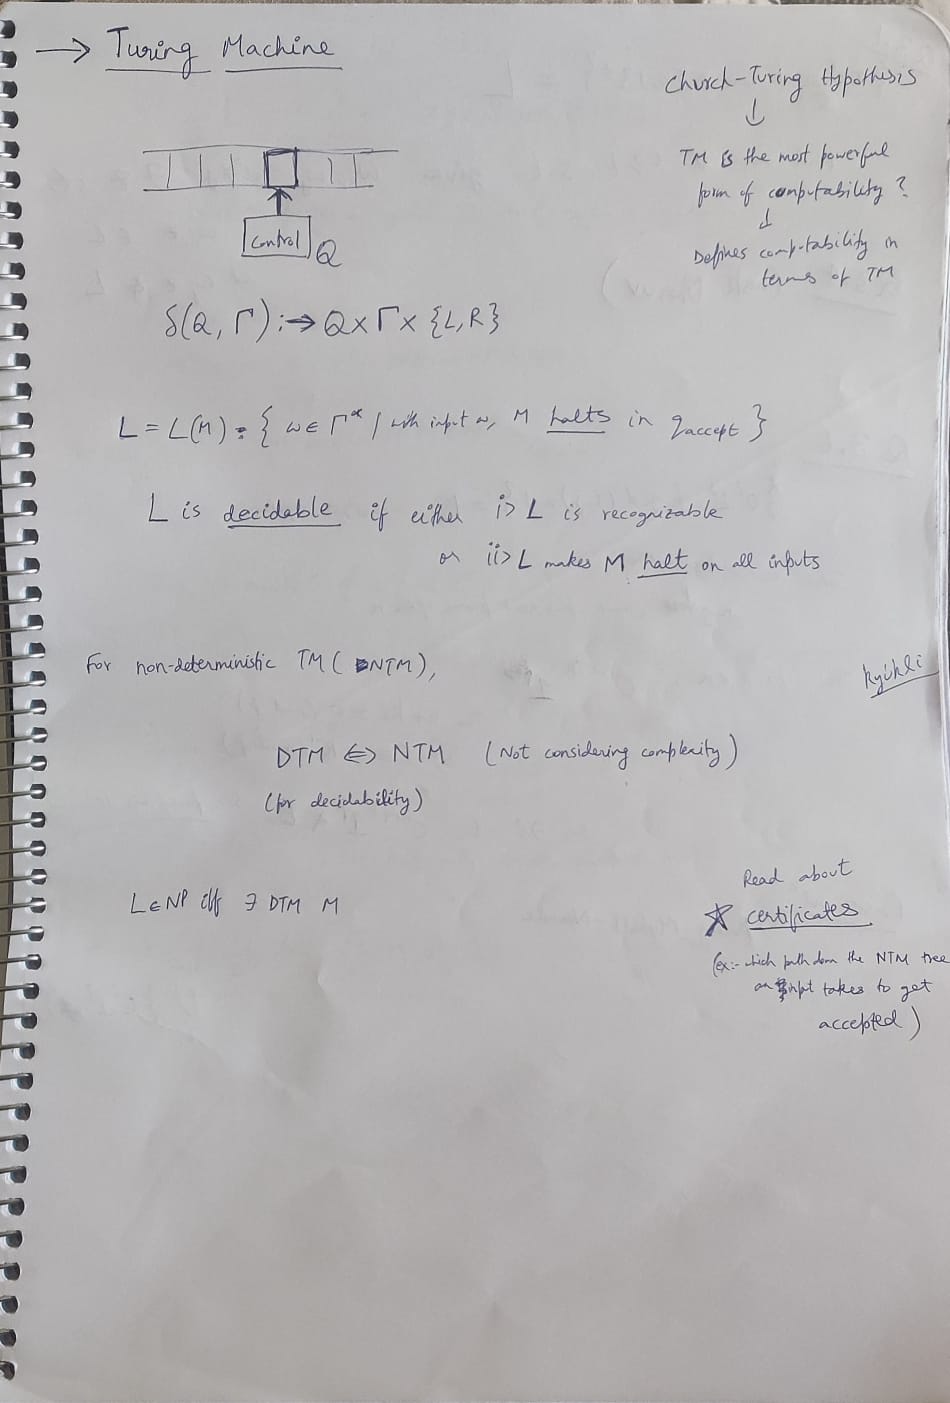 → Turing Machine
Church-Turing Hypothesis
↓
TM is the most powerful
form of computability ?
↓
Defines computability in
terms of TM
Control Q
δ(Q, Γ) :→ Q×Γ× {L,R}
L = L(M) = { w ∈ Γ* / with input w, M halts in qaccept }
L is decidable if either i> L is recognizable
or ii> L makes M halt on all inputs
For non-deterministic TM ( NTM),
DTM ⇔ NTM (Not considering complexity)
(for decidability)
L ∈ NP iff ∃ DTM M
Read about
☆ certificates
(ex:- which path down the NTM tree
an input takes to get
accepted)